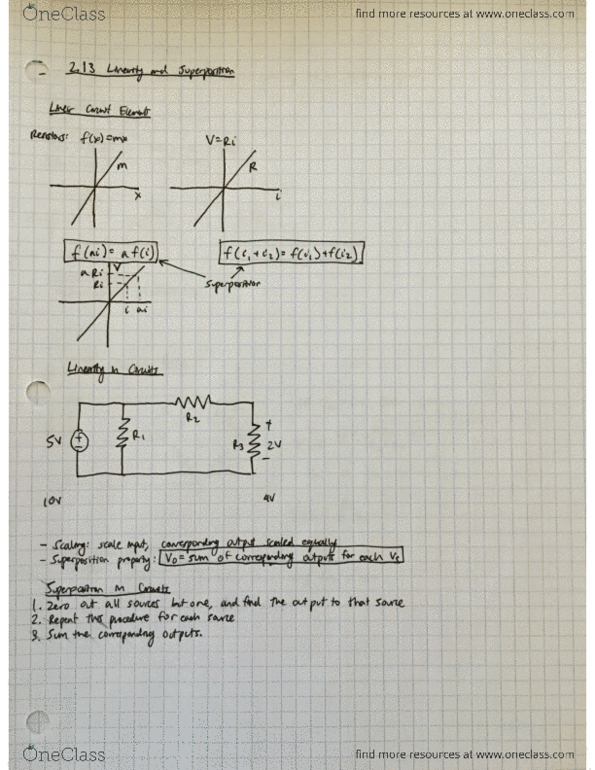 OneClass
find more resources at www.oneclass.com
2.13 Linearity and Superposition
Linear Circuit Elements
Resistors: f(x)=mx
V=Ri
m
R
x
i
f(ai)= a f(i)
f(i₁+i₂)= f(i₁)+f(i₂)
aRi
V
Ri
Superposition
i ai
Linearity in Circuits
R₂
5V
+
-
R₁
R₃
+
2V
-
10V
4V
- Scaling: scale input, corresponding output scaled equally
- Superposition property: V₀ = sum of corresponding outputs for each Vs
Superposition in Circuits
1. Zero out all sources but one, and find the output to that source
2. Repeat this procedure for each source
3. Sum the corresponding outputs.
OneClass
find more resources at www.oneclass.com